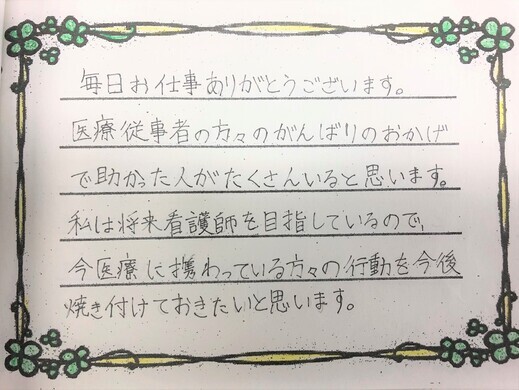 毎日お仕事ありがとうございます。
医療従事者の方々のがんばりのおかげ
で助かった人がたくさんいると思います。
私は将来看護師を目指しているので、
今医療に携わっている方々の行動を今後
焼き付けておきたいと思います。